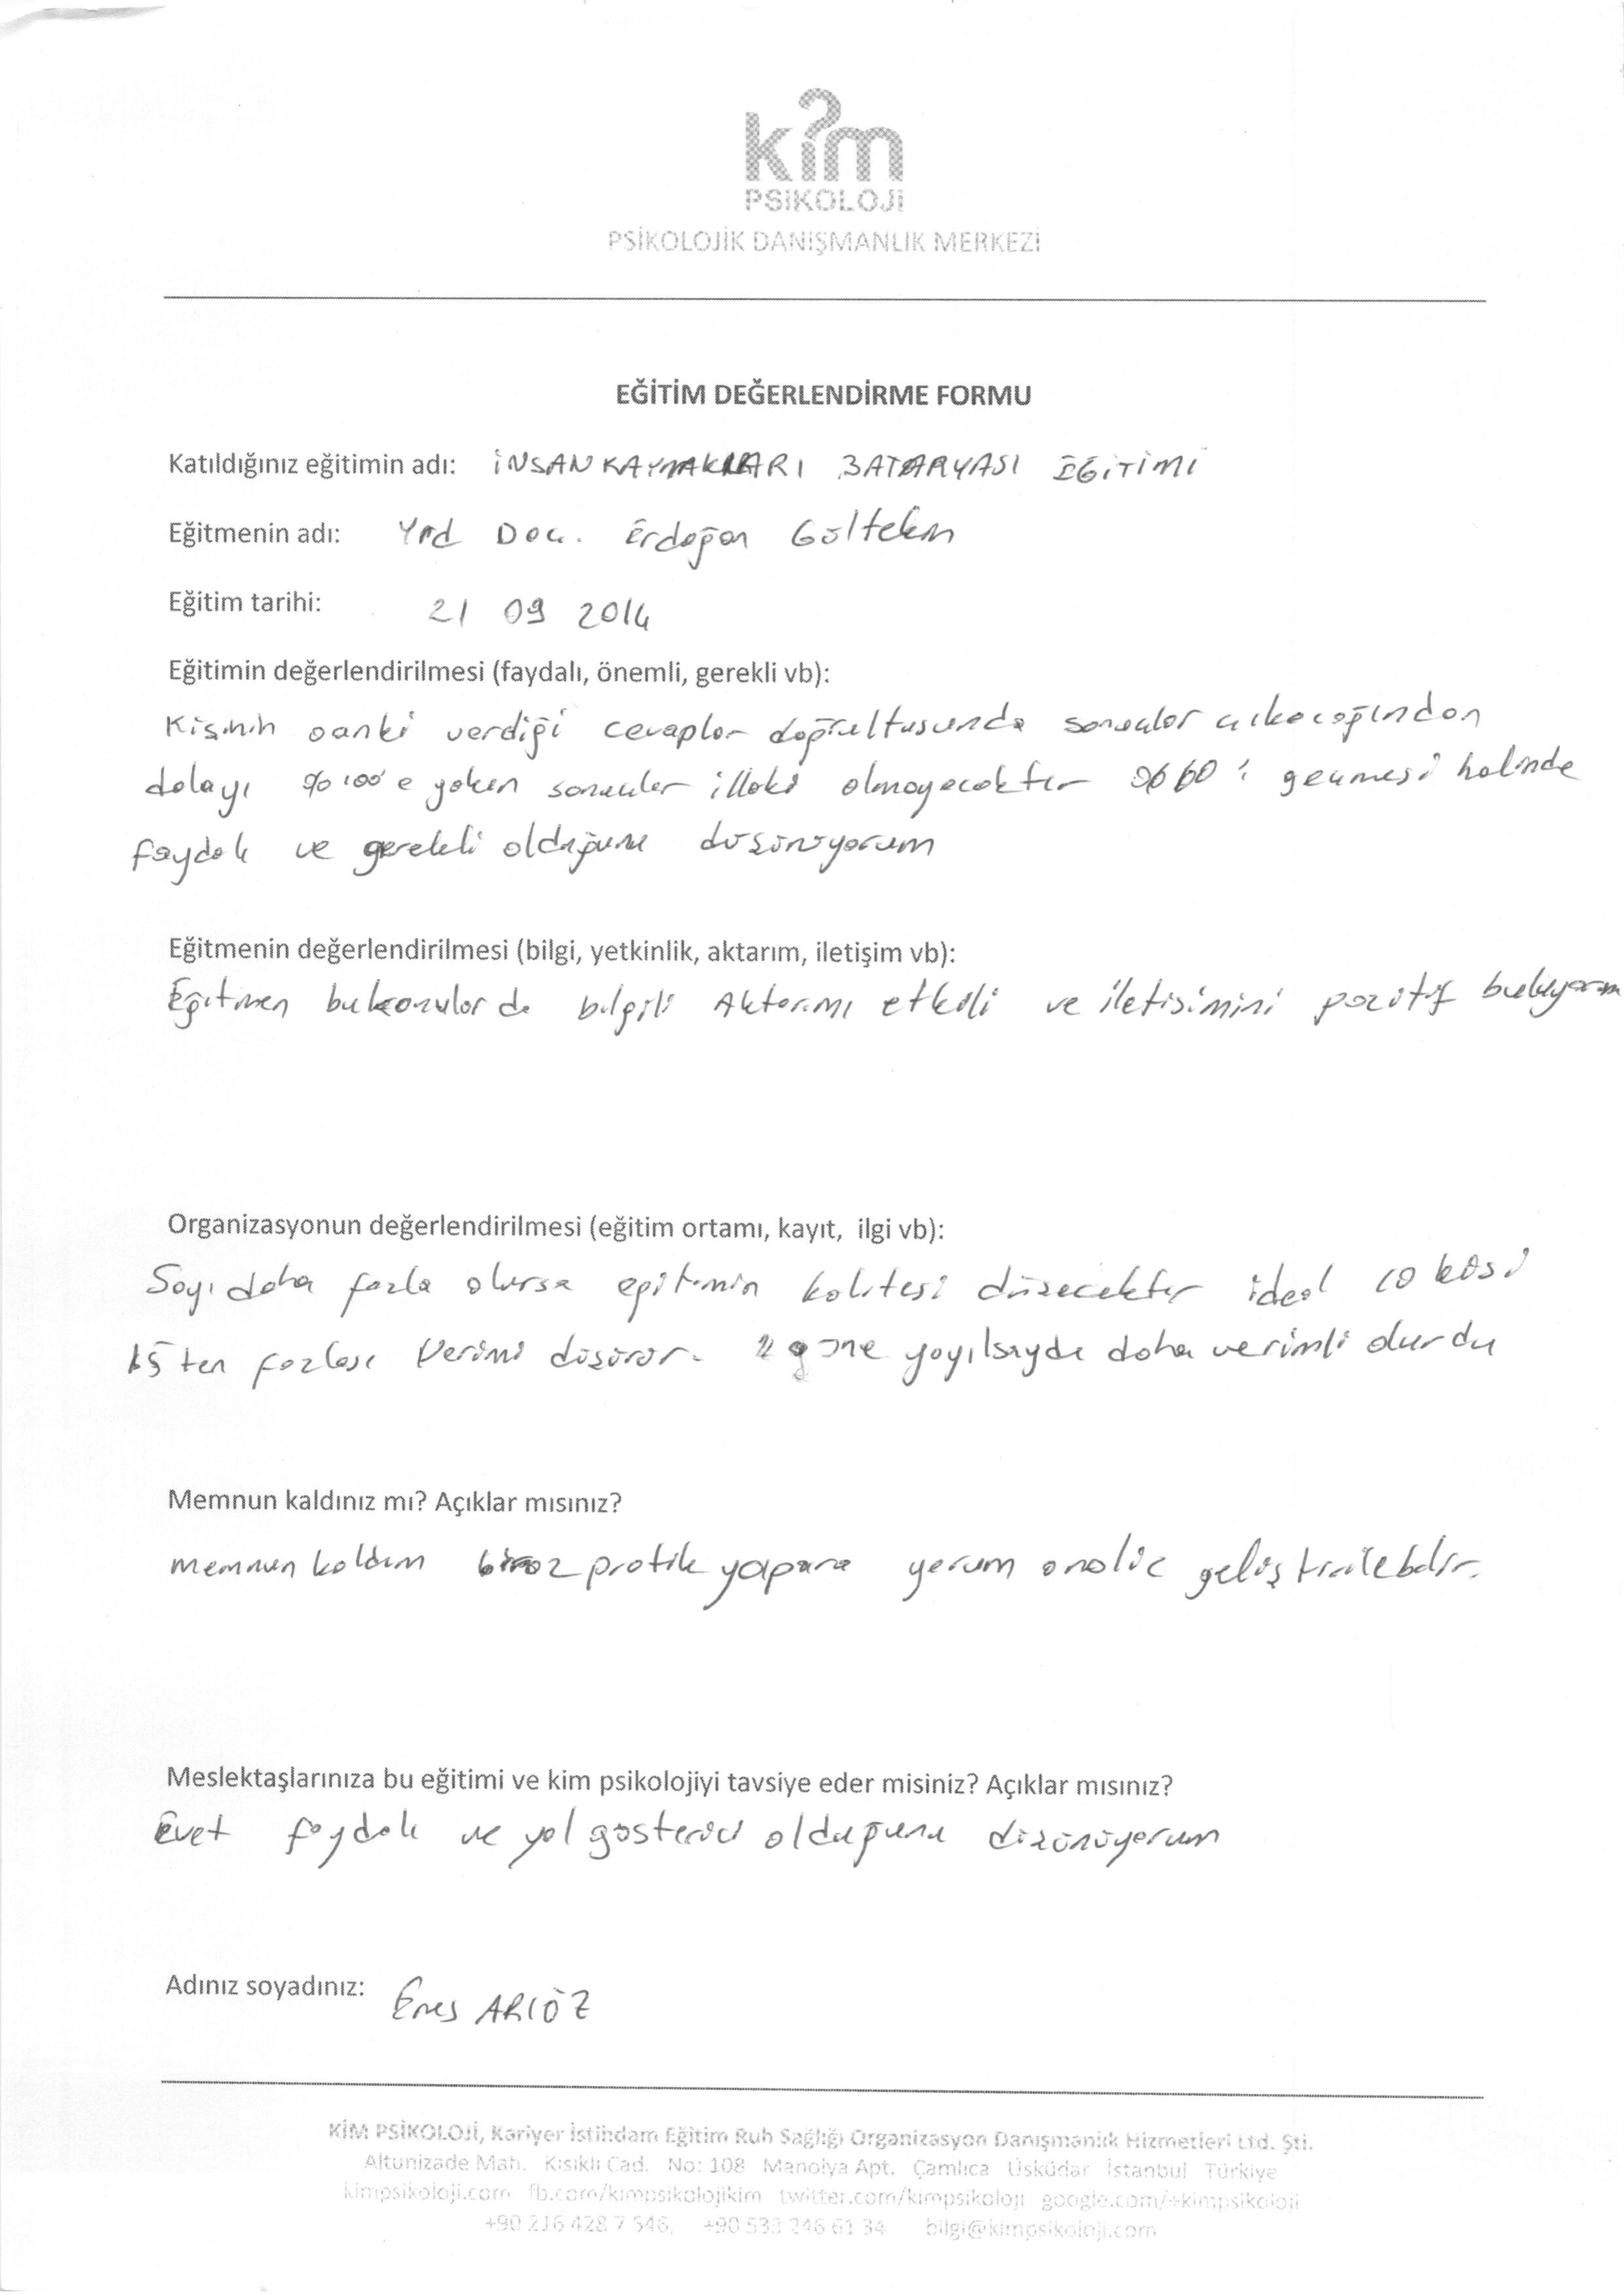 kim
PSİKOLOJİ
PSİKOLOJİK DANIŞMANLIK MERKEZİ
EĞİTİM DEĞERLENDİRME FORMU
Katıldığınız eğitimin adı: İNSAN KAYNAKLARI BATARYASI EĞİTİMİ
Eğitmenin adı: Yrd Doç. Erdoğan Gültekin
Eğitim tarihi: 21 09 2014
Eğitimin değerlendirilmesi (faydalı, önemli, gerekli vb):
Kişinin oanki verdiği cevaplar doğrultusunda sonuçlar çıkacağından
dolayı %100'e yakın sonuçlar illaki olmayacaktır %60'ı geçmesi halinde
faydalı ve gerekli olduğunu düşünüyorum
Eğitmenin değerlendirilmesi (bilgi, yetkinlik, aktarım, iletişim vb):
Eğitmen bu konularda bilgili Aktarımı etkili ve iletisimini pozitif buluyorum
Organizasyonun değerlendirilmesi (eğitim ortamı, kayıt, ilgi vb):
Sayı daha fazla olursa eğitimin kalitesi düşecektir ideal 10 kişi
15 ten fazlası Verimi düşürür. 2 güne yayılsaydı daha verimli olurdu
Memnun kaldınız mı? Açıklar mısınız?
memnun kaldım biraz pratik yapara yorum analiz geliştirilebilir.
Meslektaşlarınıza bu eğitimi ve kim psikolojiyi tavsiye eder misiniz? Açıklar mısınız?
Evet faydalı ve yol gösterici olduğunu düşünüyorum
Adınız soyadınız: Enes ARIÖZ
KİM PSİKOLOJİ, Kariyer İstihdam Eğitim Ruh Sağlığı Organizasyon Danışmanlık Hizmetleri Ltd. Şti.
Altunizade Mah. Kısıklı Cad. No: 108 Manolya Apt. Çamlıca Üsküdar İstanbul Türkiye
kimpsikoloji.com fb.com/kimpsikolojikim twitter.com/kimpsikoloji google.com/+kimpsikoloji
+90 216 428 7 546, +90 533 246 61 34 bilgi@kimpsikoloji.com